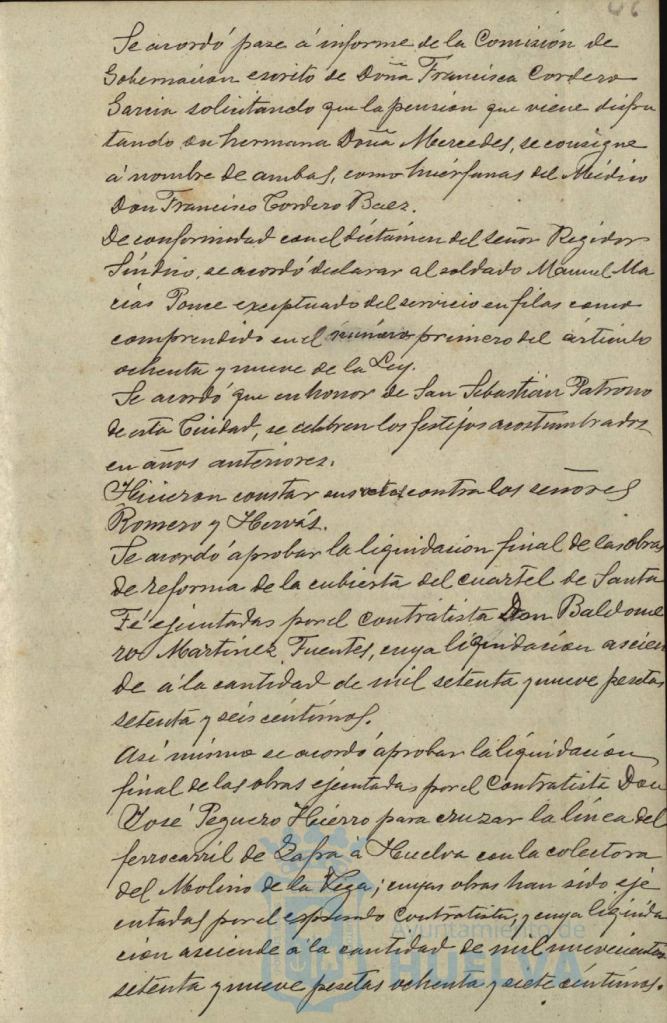 46
Se acordó pase á informe de la Comisión de
Gobernación escrito de Doña Francisca Cordero
Garcia solicitando que la pensión que viene disfru
tando su hermana Doña Mercedes, se consigne
á nombre de ambas, como huérfanas del Médico
Don Francisco Cordero Baez.
De conformidad con el dictámen del señor Regidor
Síndico, se acordó declarar al soldado Manuel Ma
cias Ponce exceptuado del servicio en filas como
comprendido en el número primero del articulo
ochenta y nueve de la Ley.
Se acordó que en honor de San Sebastian Patrono
de esta Ciudad, se celebren los festejos acostumbrados
en años anteriores.
Hicieron constar sus votos contra los señores
Romero y Hervás.
Se acordó aprobar la liquidacion final de las obras
de reforma de la cubierta del cuartel de Santa
Fé ejecutadas por el contratista Don Baldome
ro Martinez Fuentes, cuya liquidacion ascien
de á la cantidad de mil setenta y nueve pesetas
setenta y seis céntimos.
Así mismo se acordó aprobar la liquidacion
final de las obras ejecutadas por el contratista Don
José Peguero Hierro para cruzar la línea del
ferrocarril de Zafra á Huelva con la colectora
del Molino de la Vega; cuyas obras han sido eje
cutadas por el expresado contratista, y cuya liquida
cion asciende á la cantidad de mil novecientas
setenta y nueve pesetas ochenta y siete céntimos.
Ayuntamiento de
HUELVA